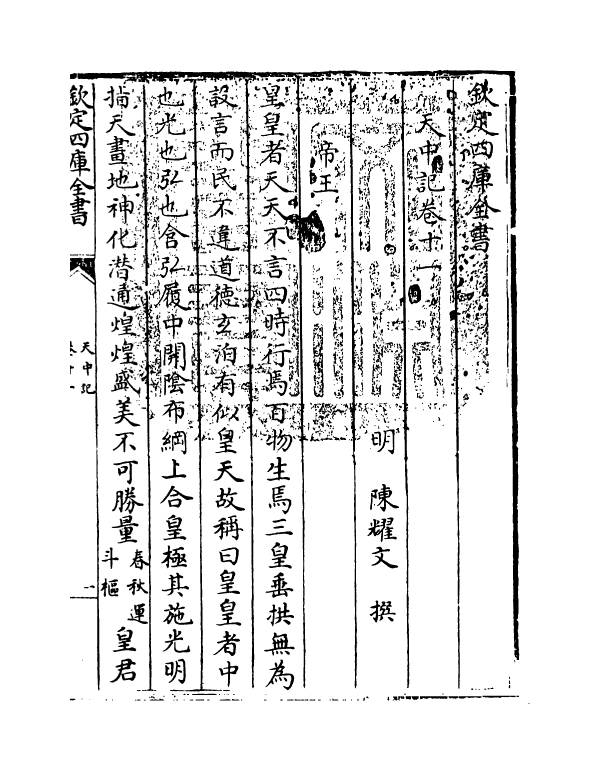 欽定四庫全書
天中記卷十一
明 陳耀文 撰
帝王
皇皇者天天不言四時行焉百物生焉三皇垂拱無為
設言而民不違道徳玄泊有似皇天故稱曰皇皇者中
也光也弘也含弘履中開陰布綱上合皇極其施光明
指天畫地神化潜通煌煌盛美不可勝量春秋運斗樞皇君
欽定四庫全書
天中記
卷十一
一